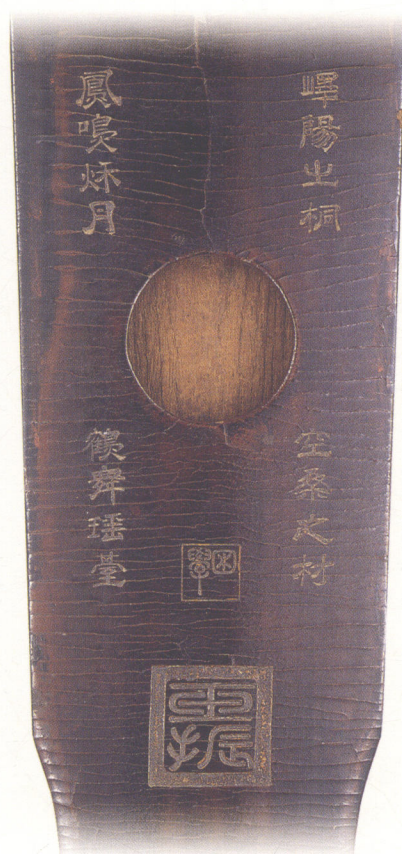 嶧陽之桐
空桑之材
鳳鳴秌月
鶴舞瑶臺
困學
玉振